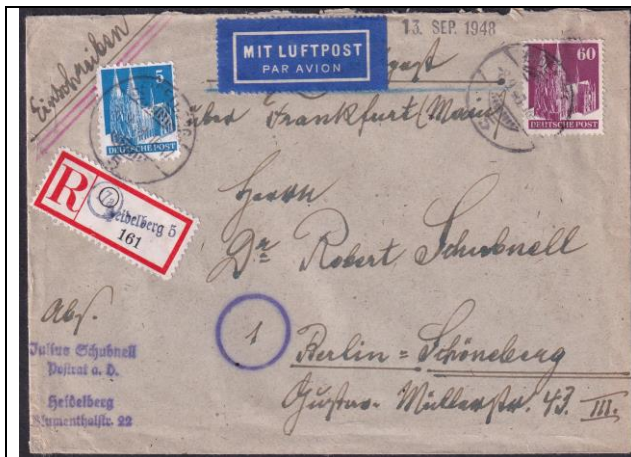 Einschreiben
13. SEP. 1948
MIT LUFTPOST
PAR AVION
5
DEUTSCHE POST
60
DEUTSCHE POST
über Frankfurt (Main)
R
Heidelberg 5
161
Herrn
Dr Robert Schubnell
1
Berlin = Schöneberg
Gustav-Müllerstr. 43. III.
Abs.
Julius Schubnell
Postrat a. D.
Heidelberg
Blumenthalstr. 22